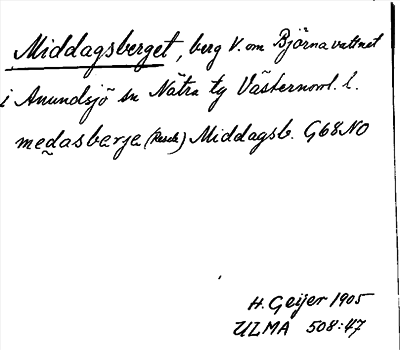 Middagsberget, berg V. om Björnavattnet
i Anundsjö sn Nätra tg Västernorrl. l.
medasbarja (Resele) Middagsb. G68NO
H. Geijer 1905
ULMA 508:47